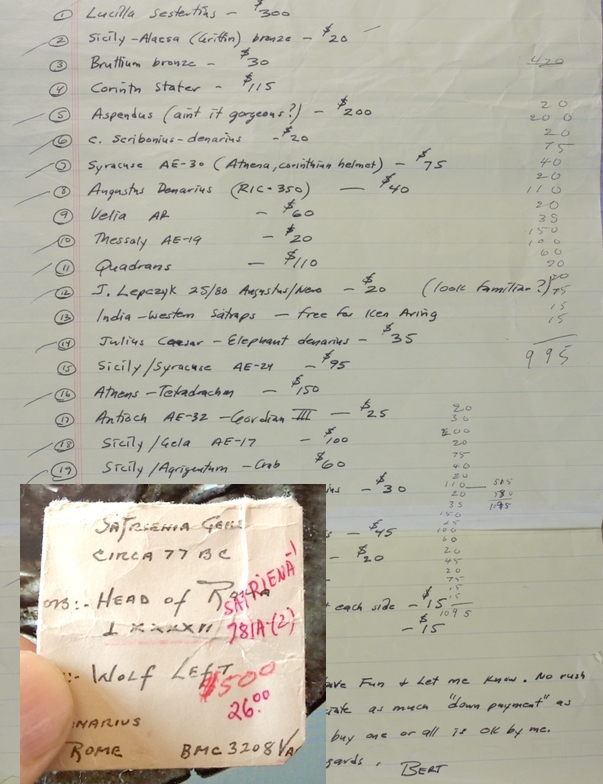 ① Lucilla Sestertius - $300
② Sicily - Alaesa (Griffin) bronze - $20
③ Bruttium bronze - $30
④ Corinth Stater - $115
⑤ Aspendus (aint it gorgeous?) - $200
⑥ C. Scribonius - denarius - $20
⑦ Syracuse AE-30 (Athena, corinthian helmet) - $75
⑧ Augustus Denarius (RIC-350) — $40
⑨ Velia AR - $60
⑩ Thessaly AE-19 - $20
⑪ Quadrans - $110
⑫ J. Lepczyk 25/80 Augustus/Nero - $20 (look familiar?)
⑬ India - Western Satraps - free for Ken Aring
⑭ Julius Caesar - Elephant denarius - $35
⑮ Sicily/Syracuse AE-24 - $95
⑯ Athens - Tetradrachm - $150
⑰ Antioch AE-32 - Gordian III — $25
⑱ Sicily/Gela AE-17 - $100
⑲ Sicily/Agrigentum - Crab $60
ius - $30
- $45
- $20
each side - $15
- $15
ave Fun & Let me know. No rush
iate as much "down payment" as
buy one or all is OK by me.
gards, BERT
420
20
200
20
75
40
20
110
20
35
150
100
60
20
20
75
15
15
995
20
30
200
20
75
40
20
110
20
35
150
25
100
60
20
45
20
75
15
15
1095
SATRIENIA GENS
CIRCA 77 BC
OB:- HEAD OF ROMA
I XXXXVI
:- WOLF LEFT
ENARIUS
ROME BMC 3208 Va
SATRIENA-1
781A-(2)
$500
26.00